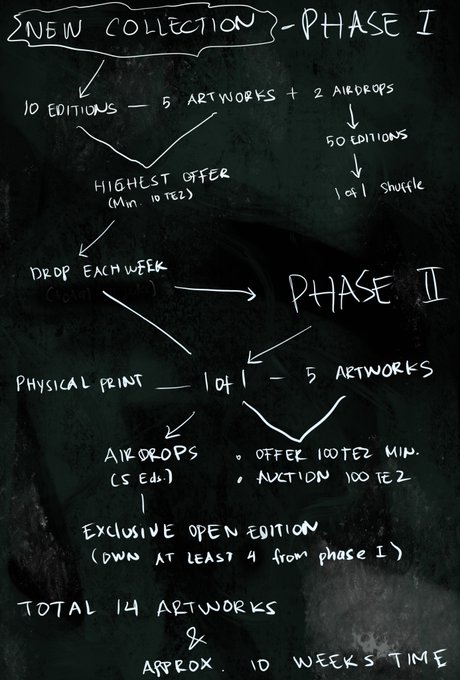 NEW COLLECTION - PHASE I
10 EDITIONS — 5 ARTWORKS + 2 AIRDROPS
50 EDITIONS
HIGHEST OFFER
(Min. 10 TEZ)
1 of 1 Shuffle
DROP EACH WEEK
PHASE II
PHYSICAL PRINT — 1 of 1 — 5 ARTWORKS
AIRDROPS
(5 Eds.)
• OFFER 100 TEZ MIN.
• AUCTION 100 TEZ
EXCLUSIVE OPEN EDITION
(OWN AT LEAST 4 from phase I)
TOTAL 14 ARTWORKS
&
APPROX. 10 WEEKS TIME